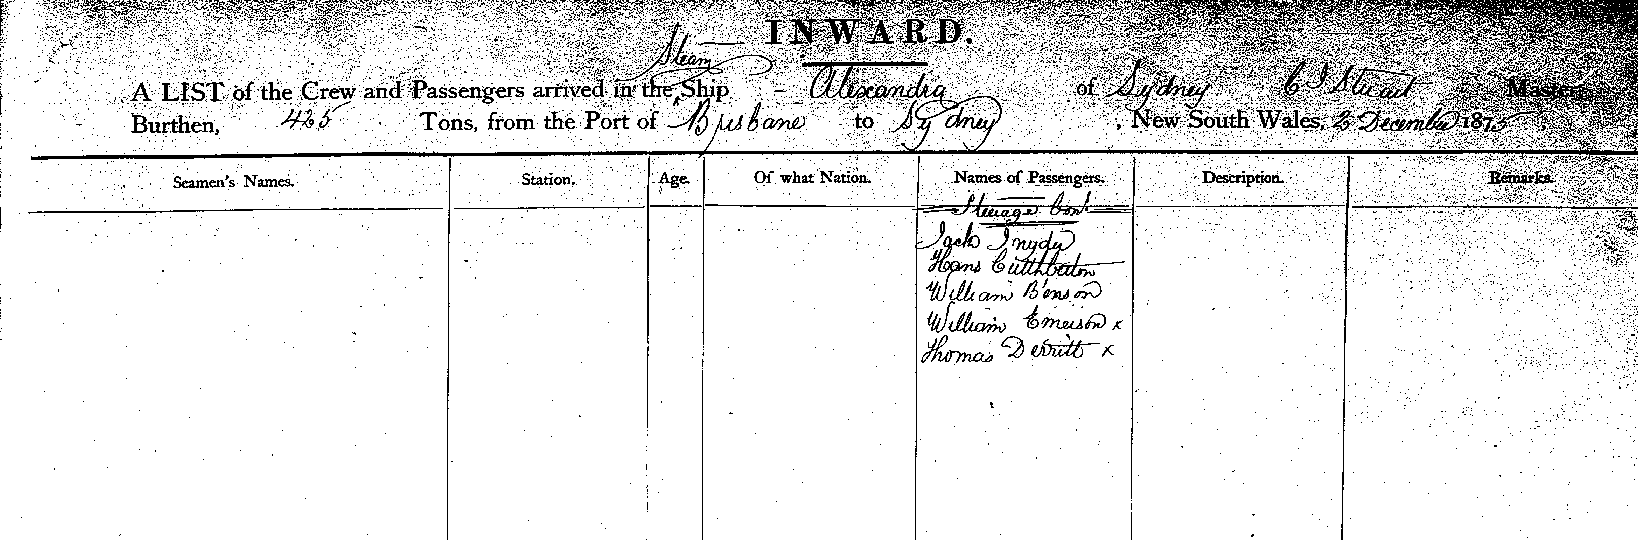 INWARD.
Steam
A LIST of the Crew and Passengers arrived in the Ship Alexandra of Sydney C J Stuart Master,
Burthen, 425 Tons, from the Port of Brisbane to Sydney, New South Wales, December 1875
Seamen's Names. Station. Age. Of what Nation. Names of Passengers. Description. Remarks.
Steerage Cont
Jack
Hans Cuthbertson
William Benson
William Emerson x
Thomas Derritt x